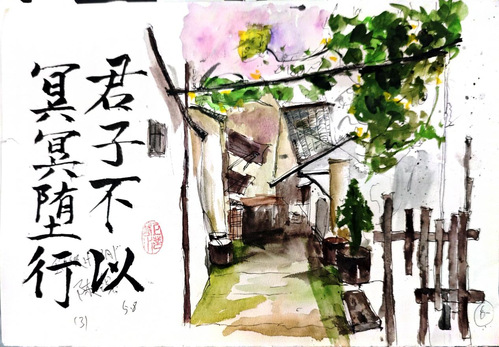 君子不以
冥冥堕行
(3)
5.8